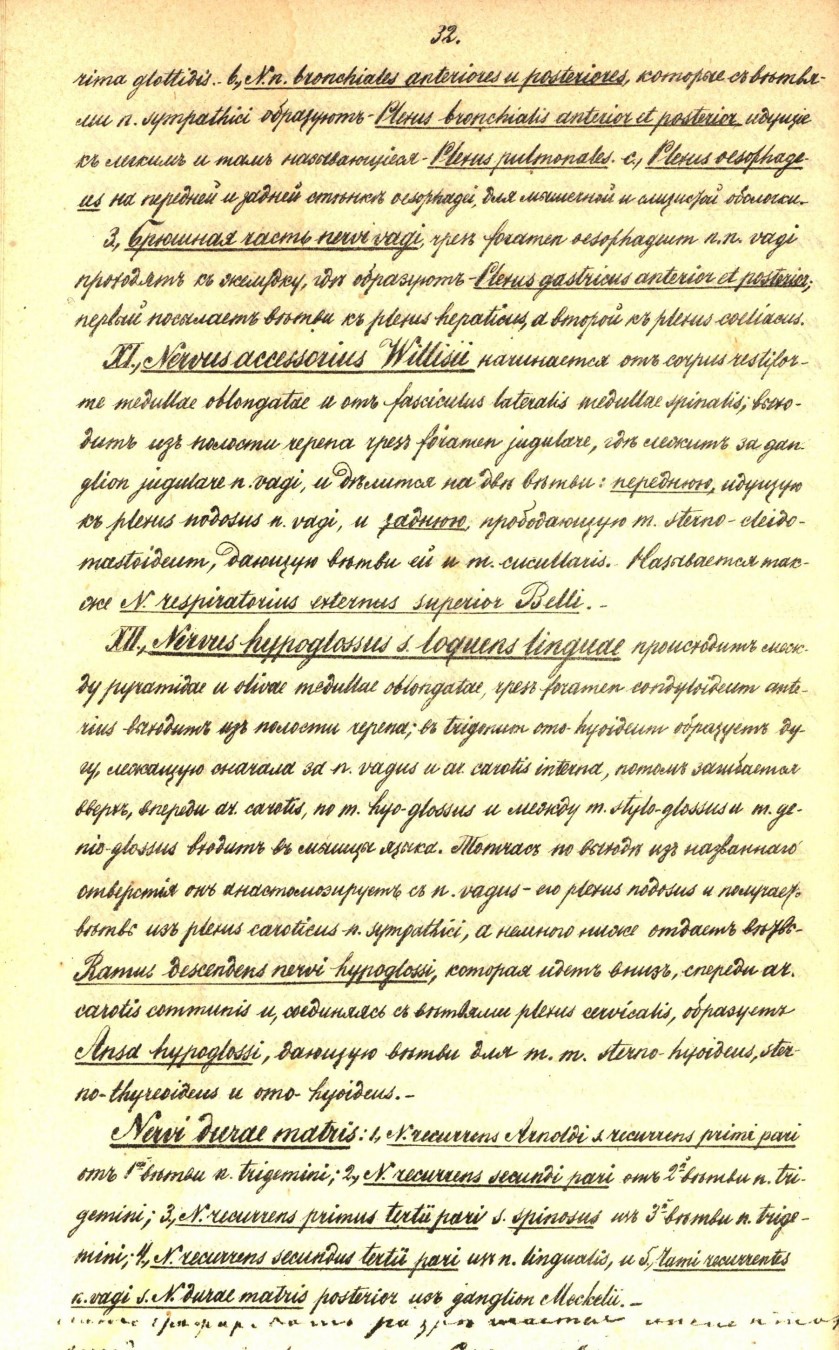 32.
rima glottidis.- b, N.n. bronchiales anteriores и posteriores, которые съ вѣтвя-
ми n. sympathici образуютъ- Plexus bronchialis anterior et posterior идущіе
къ легкимъ и тамъ называющіеся- Plexus pulmonales. c, Plexus oesophage-
us на передней и задней стѣнкѣ oesophagei, для мышечной и слизистой оболочки.-
3, Брюшная часть nervi vagi, чрезъ foramen oesophageum n.n. vagi
проходятъ къ желудку, гдѣ образуютъ- Plexus gastricus anterior et posterior;
первый посылаетъ вѣтви къ plexus hepaticus, а второй къ plexus coeliacus.
XI, Nervus accessorius Willisii начинается отъ corpus restifor-
me medullae oblongatae и отъ fasciculus lateralis medullae spinalis; выхо-
дитъ изъ полости черепа чрезъ foramen jugulare, гдѣ лежитъ за gan-
glion jugulare n. vagi, и дѣлится на двѣ вѣтви: переднюю, идущую
къ plexus nodosus n. vagi, и заднюю, прободающую m. sterno-cleido-
mastoideum, дающую вѣтви ей и m. cucullaris. Называется так-
же N. respiratorius externus superior Belli.-
XII, Nervus hypoglossus s. loquens linguae происходитъ меж-
ду pyramidae и olivae medullae oblongatae, чрезъ foramen condyloideum ante-
rius выходитъ изъ полости черепа; въ trigonum omo-hyoideum образуетъ ду-
гу, лежащую сначала за n. vagus и ar. carotis interna, потомъ загибается
вверхъ, впереди ar. carotis, по m. hyo-glossus и между m. stylo-glossus и m. ge-
nio-glossus входитъ въ мышцы языка. Тотчасъ по выходѣ изъ названнаго
отверстія онъ анастомозируетъ съ n. vagus- его plexus nodosus и получает
вѣтвь изъ plexus caroticus n. sympathici, а немного ниже отдаетъ вѣтвь-
Ramus descendens nervi hypoglossi, которая идетъ внизъ, спереди ar.
carotis communis и, соединяясь съ вѣтвями plexus cervicalis, образуетъ
Ansa hypoglossi, дающую вѣтви для m. m. sterno-hyoideus, ster-
no-thyreoideus и omo-hyoideus.-
Nervi durae matris: 1, N. recurrens Arnoldi s. recurrens primi pari
отъ 1ой вѣтви n. trigemini; 2, N. recurrens secundi pari отъ 2й вѣтви n. tri-
gemini; 3, N. recurrens primus tertii pari s. spinosus изъ 3й вѣтви n. trige-
mini; 4, N. recurrens secundus tertii pari изъ n. lingualis, и 5, rami recurrentes
n. vagi s. N. durae matris posterior изъ ganglion Meckelii.-